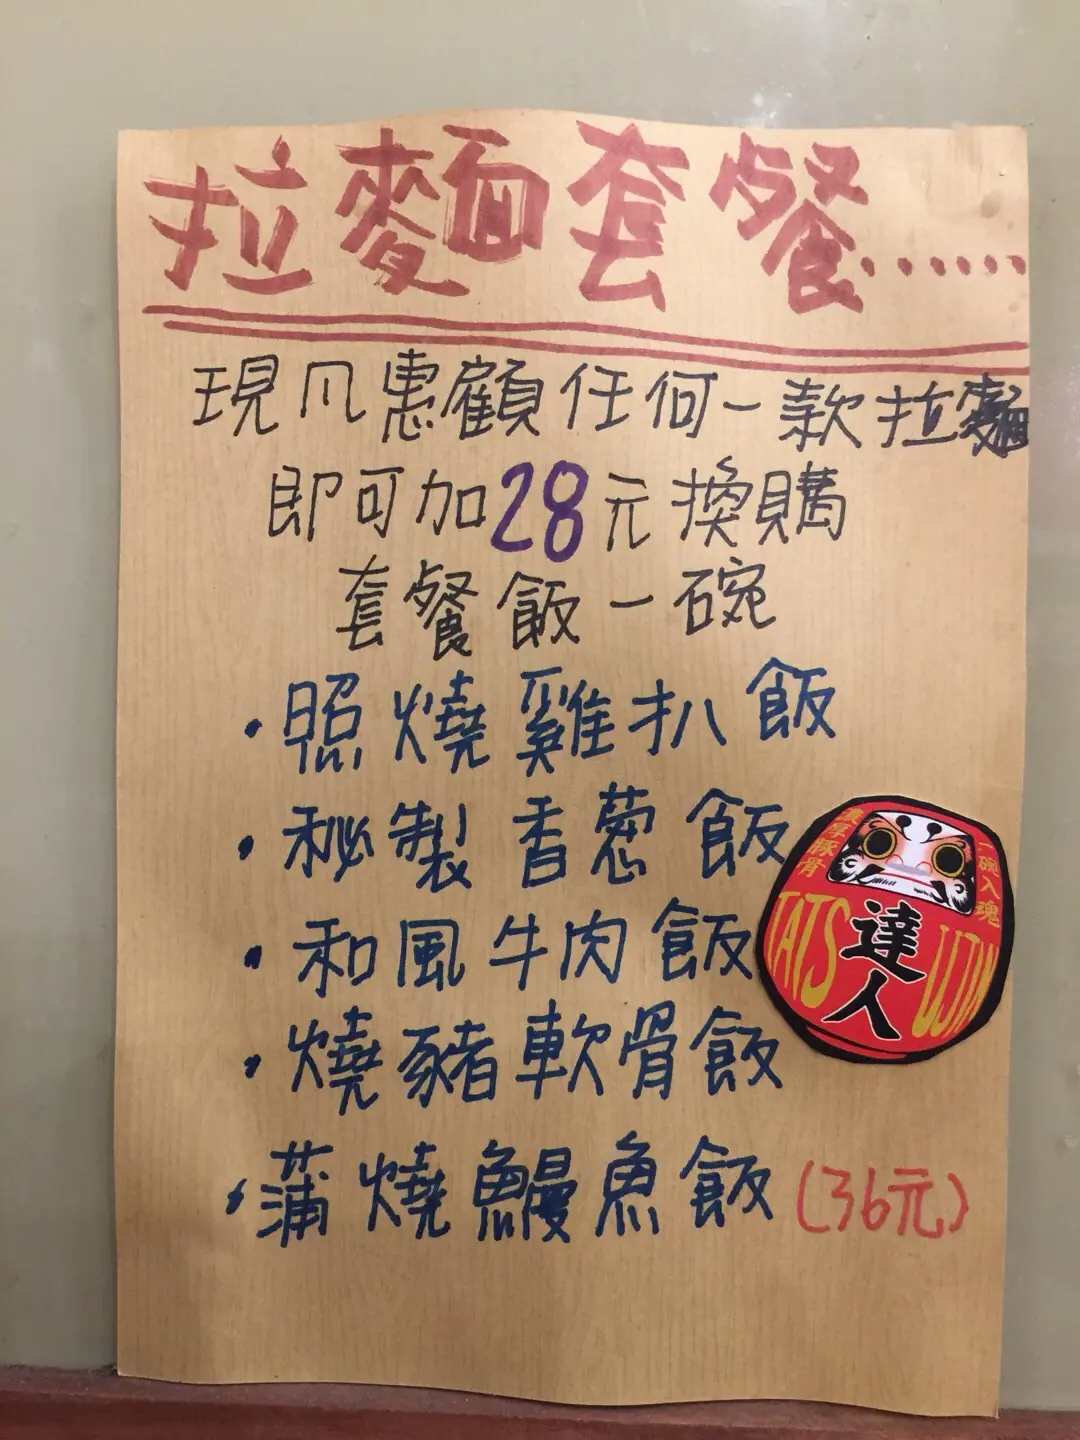 拉麵套餐......
現凡惠顧任何一款拉麵
即可加28元換購
套餐飯一碗
·照燒雞扒飯
·秘製香葱飯
·和風牛肉飯
·燒豬軟骨飯
·蒲燒鰻魚飯(36元)
濃厚豚骨
一碗入魂
TATSUJIN
達人